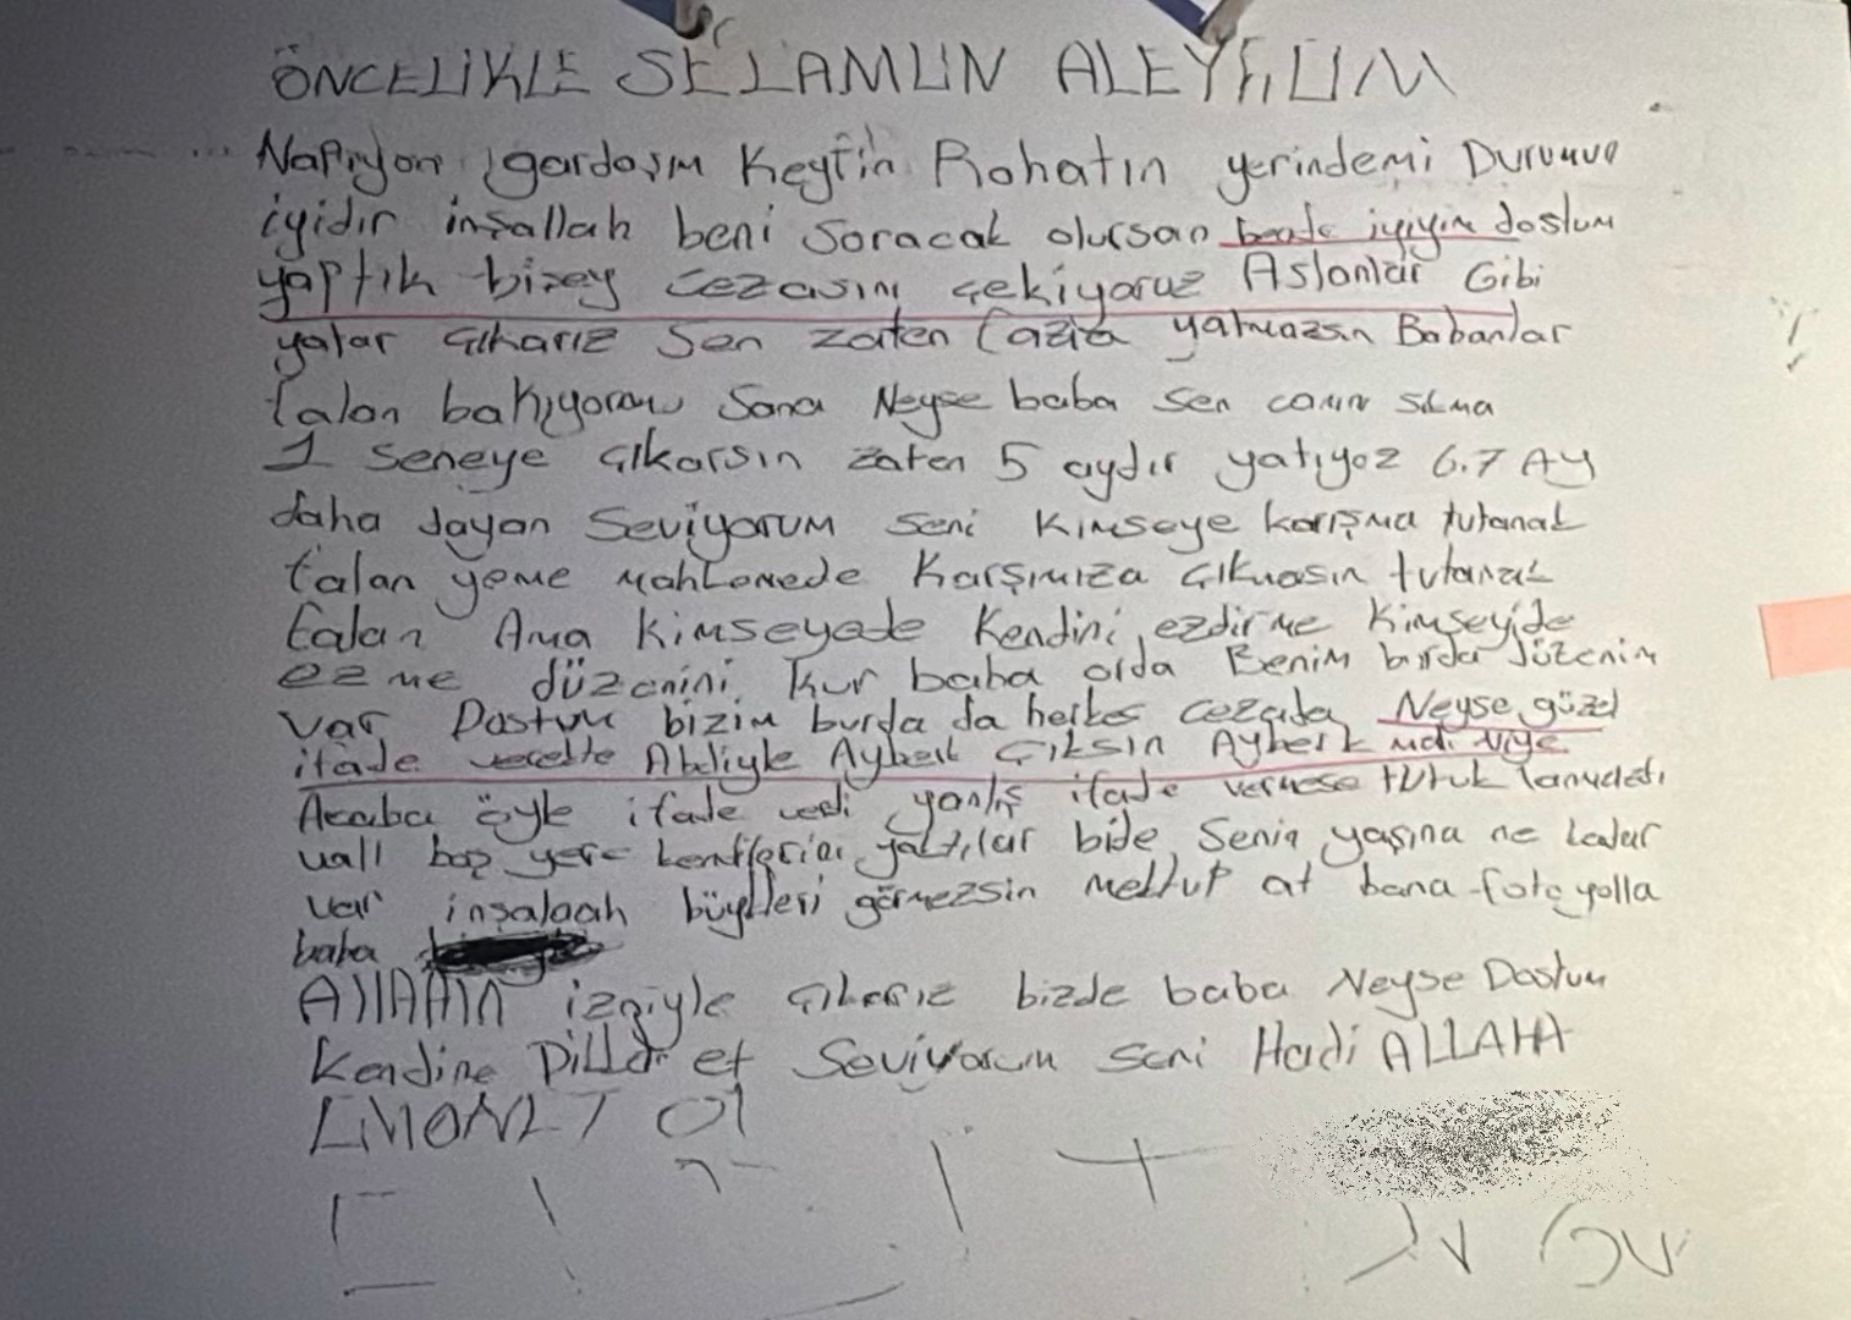 ÖNCELİKLE SELAMUN ALEYKUM
Napıyon gardaşım Keyfin Rohatın yerindemi Durumun
iyidir inşallah beni soracak olursan bende iyiyim dostum
yaptık bişey cezasını çekiyoruz Aslanlar Gibi
yatar çıkarız Sen zaten fazla yatmazsın Babanlar
falan bakıyorum sana Neyse baba sen canın sıkma
1 seneye çıkarsın zaten 5 aydır yatıyoz 6.7 AY
daha dayan Seviyorum seni Kimseye karışma tutanak
falan yeme mahkemede Karşımıza çıkmasın tutanak
falan Ama kimseyede kendini ezdirme kimseyide
ezme düzenini kur baba orda Benim burda düzenim
var Dostum bizim burda da herkes cezada Neyse güzel
ifade verekte Abliyle Ayberk Çıksın Ayberk niye
Acaba öyle ifade verdi yanlış ifade vermese tutuklanmazdı
vall boş yere yaktılar bide Senin yaşına ne kadar
var inşalaah görmezsin mektup at bana foto yolla
baba
Allahın izniyle çıkarız bizde baba Neyse Dostum
Kendine Dikkat et Seviyorum seni Hadi ALLAHA
EMONET Ol